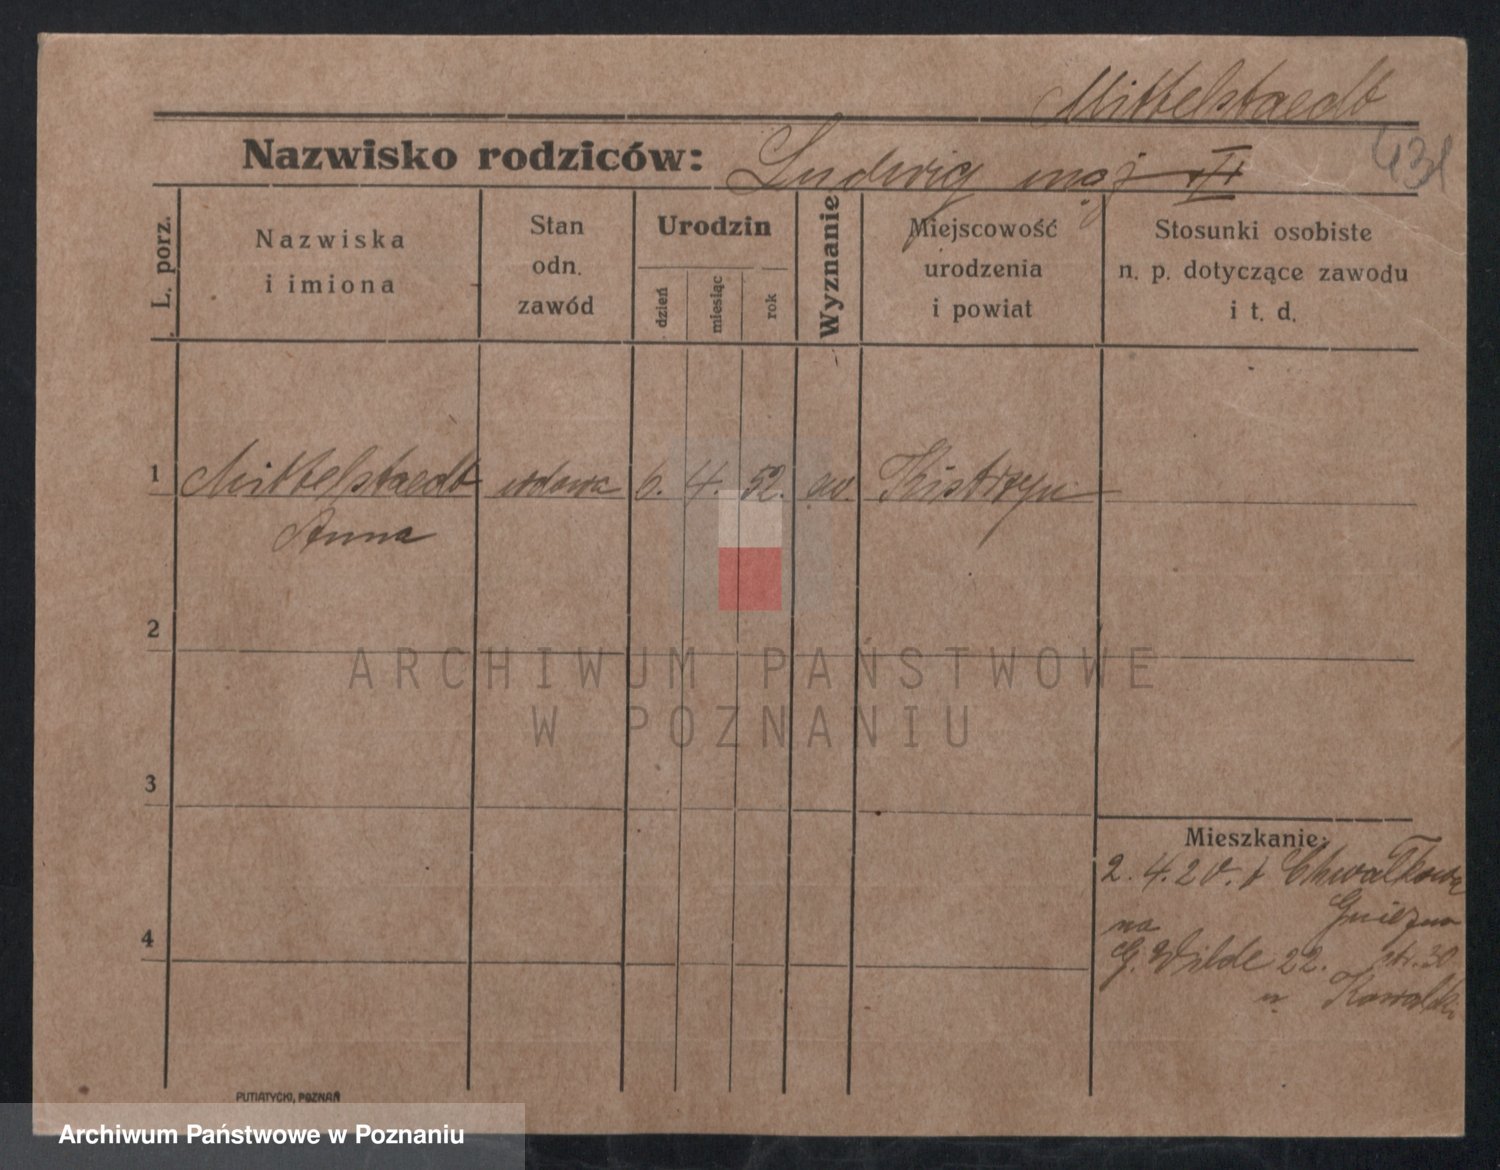 Mittelstaedt
431
Nazwisko rodziców: Ludwig mąż
L. porz.
Nazwiska
i imiona
Stan
odn.
zawód
Urodzin
dzień
miesiąc
rok
Wyznanie
Miejscowość
urodzenia
i powiat
Stosunki osobiste
n. p. dotyczące zawodu
i t. d.
1 Mittelstaedt wdowa 6. 4. 52. ew. Kistrzyn
Anna
2
3
4
Mieszkanie:
2. 4. 20. z Chwałkowa
Gniezno
na
G. Wilde 22. str. 30
u Kowalski
PUTIATYCKI, POZNAŃ
ARCHIWUM PAŃSTWOWE
W POZNANIU
Archiwum Państwowe w Poznaniu